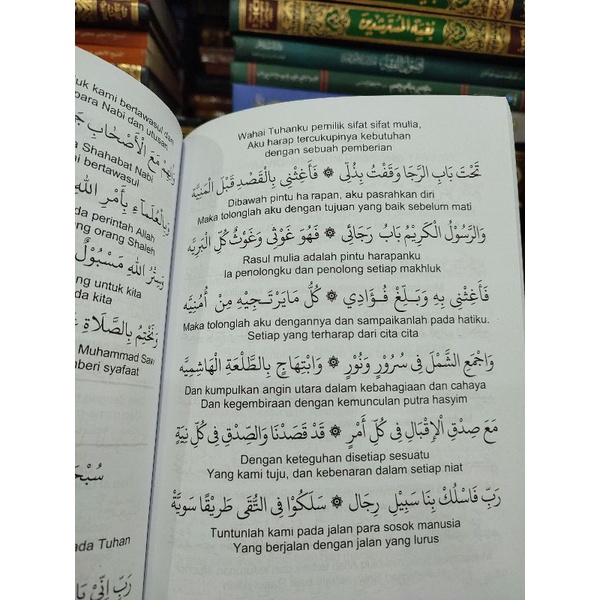 بغية المسترشدين
uk kami bertawasul dan
para Nabi dan utusan
الْأَصْحَابِ
a Shahabat Nabi
mi bertawasul
بِأَمْرِ اللهِ
da perintah Allah
ng orang Shaleh
وَسِتْرُ اللهِ مَسْبُوْلٌ
ng untuk kita
da kita
وَنَخْتِمُ بِالصَّلَاةِ
Muhammad Saw
beri syafaat
ada Tuhan
Wahai Tuhanku pemilik sifat sifat mulia,
Aku harap tercukupinya kebutuhan
dengan sebuah pemberian
تَحْتَ بَابِ الرَّجَا وَقَفْتُ بِذُلِّى ۞ فَأَغِثْنِى بِالْقَصْدِ قَبْلَ الْمَنِيَّة
Dibawah pintu ha rapan, aku pasrahkan diri
Maka tolonglah aku dengan tujuan yang baik sebelum mati
وَالرَّسُوْلُ الْكَرِيْمُ بَابُ رَجَائِى ۞ فَهُوَ غَوْثِى وَغَوْثُ كُلِّ الْبَرِيَّه
Rasul mulia adalah pintu harapanku
Ia penolongku dan penolong setiap makhluk
فَأَغِثْنِى بِهِ وَبَلِّغْ فُؤَادِي ۞ كُلُّ مَايَرْتَجِيْهِ مِنْ أُمْنِيَّه
Maka tolonglah aku dengannya dan sampaikanlah pada hatiku.
Setiap yang terharap dari cita cita
وَاجْمَعِ الشَّمْلَ فِى سُرُوْرٍ وَنُوْرٍ ۞ وَابْتِهَاجٍ بِالطَّلْعَةِ الْهَاشِمِيَّه
Dan kumpulkan angin utara dalam kebahagiaan dan cahaya
Dan kegembiraan dengan kemunculan putra hasyim
مَعَ صِدْقِ الْإِقْبَالِ فِى كُلِّ أَمْرٍ ۞ قَدْ قَصَدْنَا وَالصِّدْقِ فِى كُلِّ نِيَّة
Dengan keteguhan disetiap sesuatu
Yang kami tuju, dan kebenaran dalam setiap niat
رَبِّ فَاسْلُكْ بِنَا سَبِيْلَ رِجَالٍ ۞ سَلَكُوْا فِى التُّقَى طَرِيْقًا سَوِيَّةً
Tuntunlah kami pada jalan para sosok manusia
Yang berjalan dengan jalan yang lurus